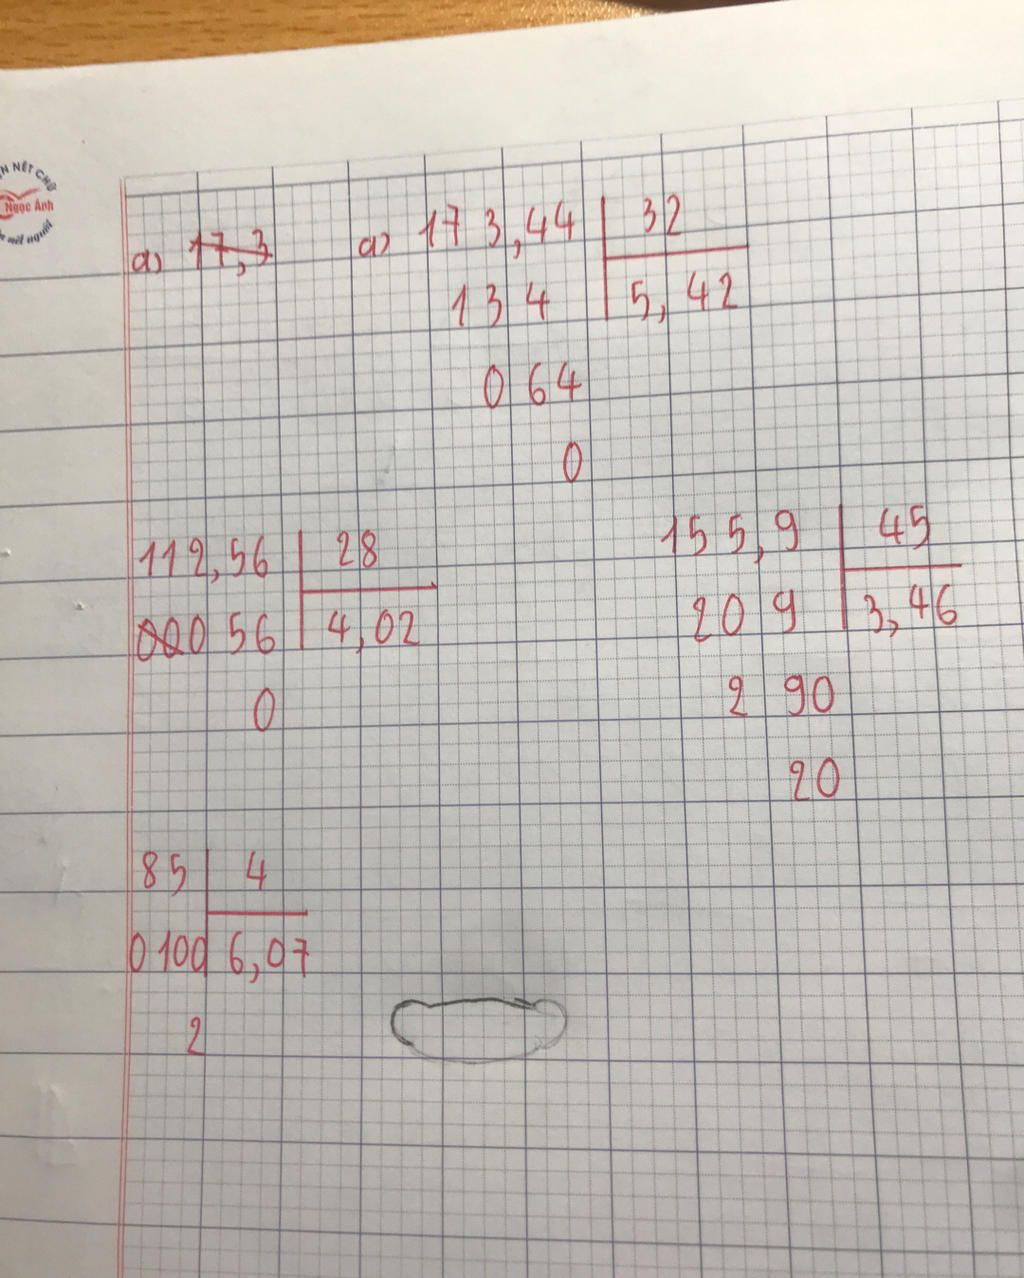 N NÉT CHỮ
Ngọc Ánh
nét người
a) 17,3 a) 173,44 32
134 5,42
064
0
112,56 28
00056 4,02
0
155,9 45
209 3,46
290
20
85 4
0100 6,07
2